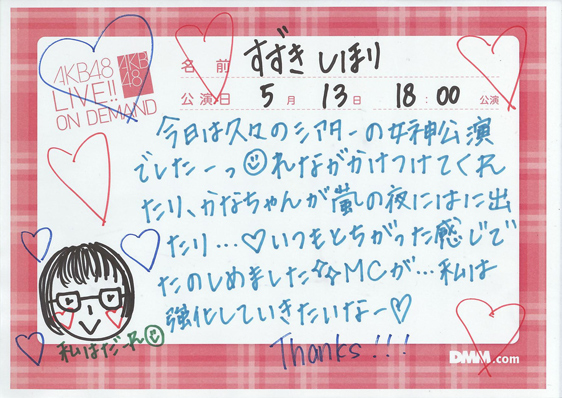 AKB48
LIVE!!
ON DEMAND
AKB
48
名前 すずきしほり
公演日 5月13日 18:00 公演
今日は久々のシアターの女神公演
でしたーっ れながかけつけてくれ
たり、かなちゃんが嵐の夜にはに出
たり...♡いつもとちがった感じで
たのしめました☆☆MCが...私は
強化していきたいなー♡
私はだーれ
Thanks!!!
DMM.com